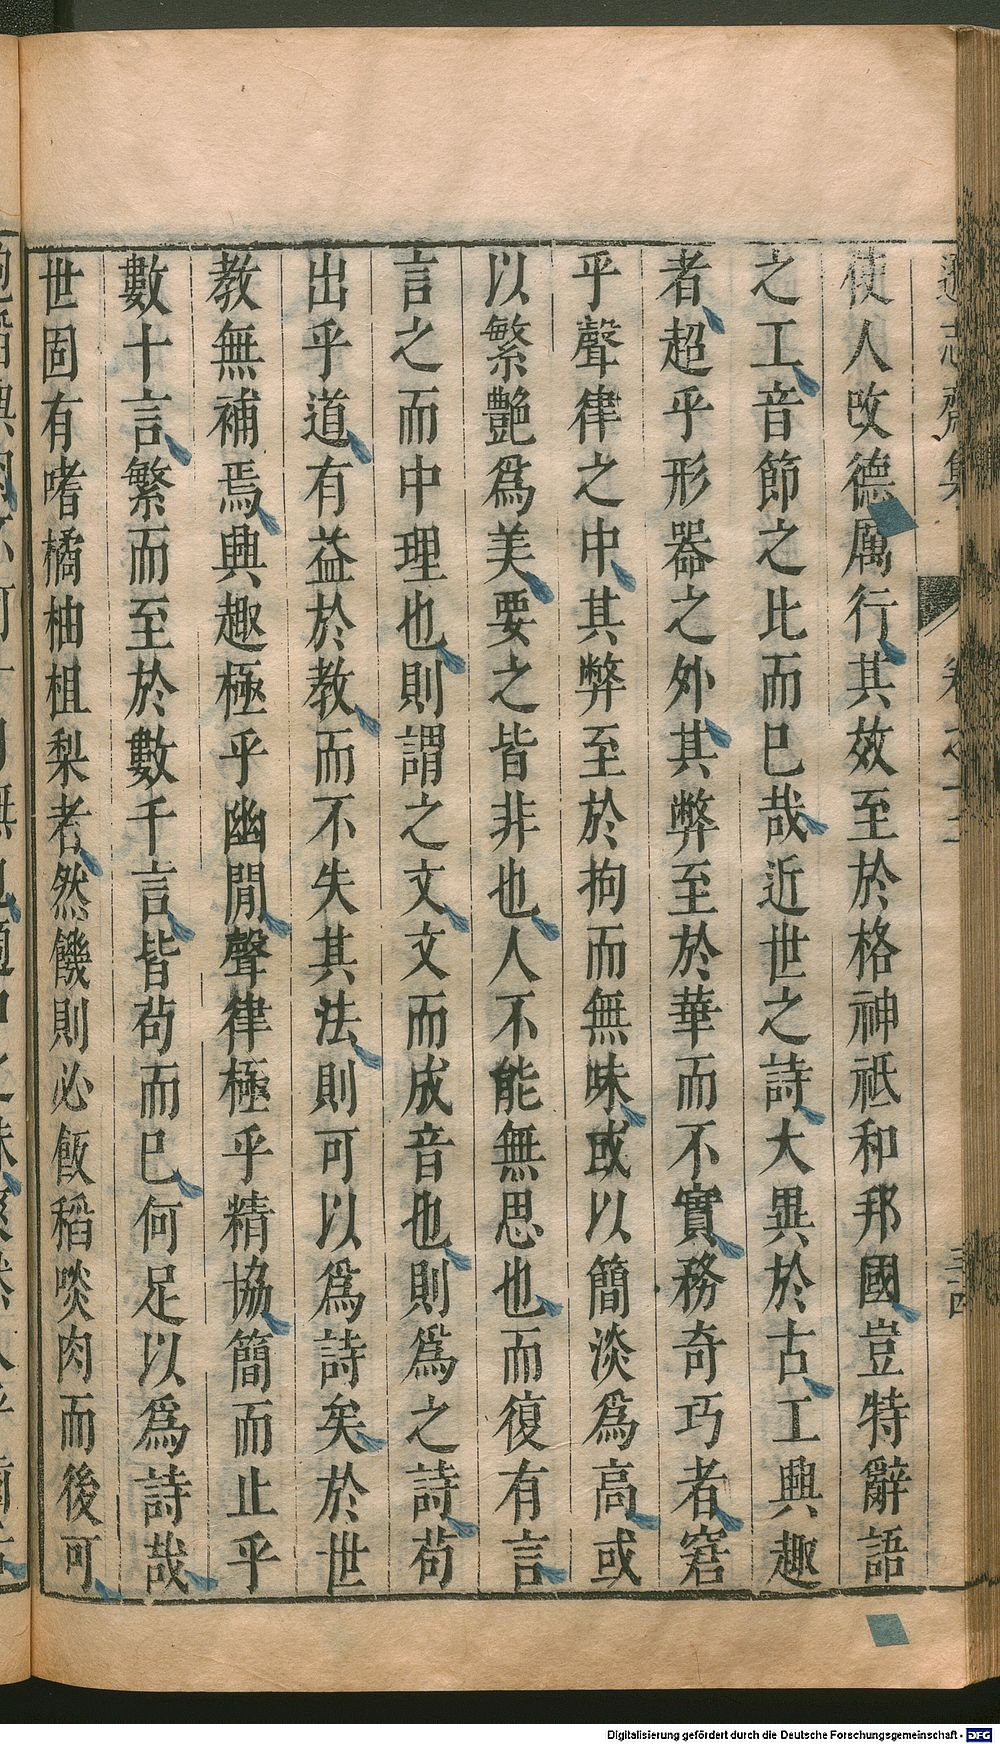 遜志齋集 卷之十二 三四
使人攺德厲行其效至於格神祗和邦國豈特辭語
之工音節之比而巳哉近世之詩大異於古工興趣
者超乎形器之外其弊至於華而不實務奇巧者窘
乎聲律之中其弊至於拘而無味或以簡淡為高或
以繁艷爲美要之皆非也人不能無思也而復有言
言之而中理也則謂之文文而成音也則爲之詩苟
出乎道有益於教而不失其法則可以爲詩矣於世
教無補焉興趣極乎幽閒聲律極乎精協簡而止乎
數十言繁而至於數千言皆苟而巳何足以爲詩哉
世固有嗜橘柚柤梨者然饑則必飯稻啖肉而後可
Digitalisierung gefördert durch die Deutsche Forschungsgemeinschaft - DFG